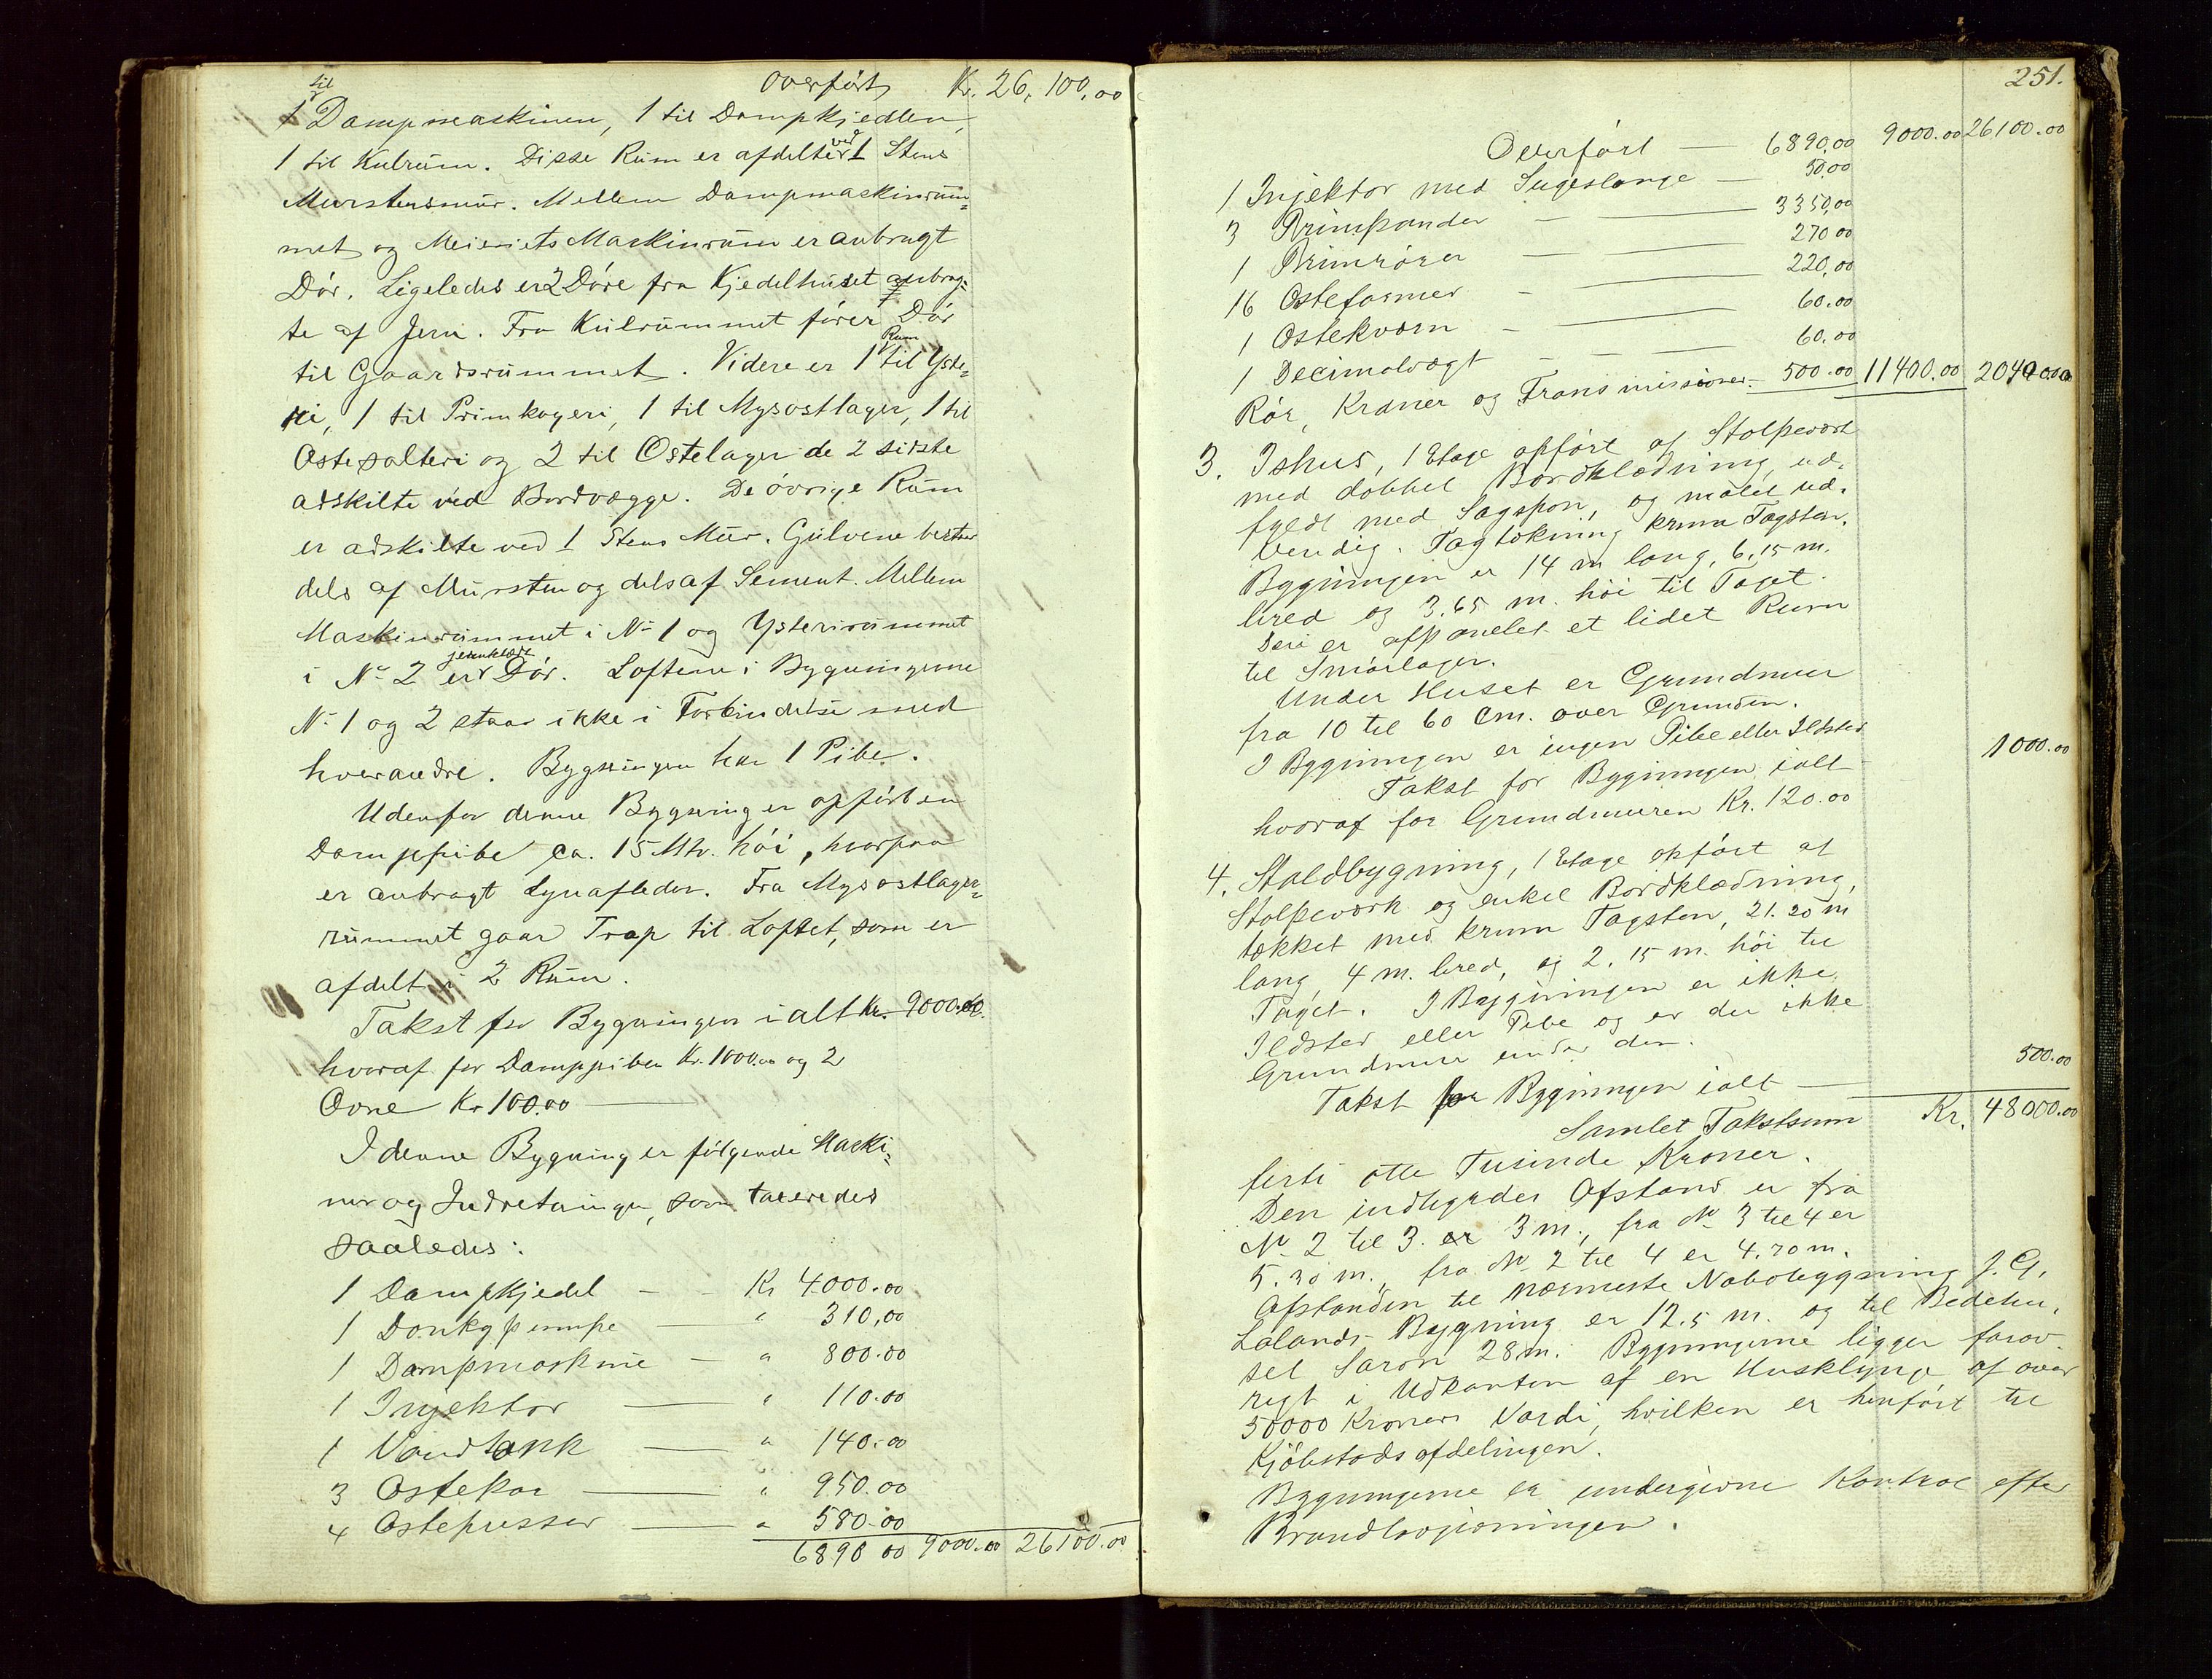 Overført Kr. 26,100,00
til
1 Dampmaskinen, 1 til Dampkjedlen,
1 til Kulrum. Disse Rum er afdelte ved 1 Stens
Murstensmur. Mellem Dampmaskinrum=
met og Meieriets Maskinrum er anbragt
Dør. Ligeledes er 2 Døre fra Kjedelhuset anbrag=
te af Jern. Fra Kulrummet fører Dør
til Gaardsrummet. Videre er 1 Rum til Yste=
ri, 1 til Primkogeri, 1 til Mysostlager, 1 til
Ostesalteri og 2 til Ostelager de 2 sidste
adskilte ved Bordvægge. De øvrige Rum
er adskilte ved 1 Stens Mur. Gulvene bestaar
dels af Mursten og dels af Sement. Mellem
Maskinrummet i No 1 og Ysterirummet
i No 2 er jernklædt Dør. Loftene i Bygningerne
No 1 og 2 staar ikke i Forbindelse med
hverandre. Bygningen har 1 Pibe.
Udenfor denne Bygning er opført en
Damppibe ca. 15 Mtr. høi, hvorpaa
er anbragt Lynafleder. Fra Mysostlager=
rummet gaar Trap til Loftet, som er
afdelt i 2 Rum.
Takst for Bygningen ialt Kr. 9000.00.
hvoraf for Damppiben Kr. 1000.00 og 2
Ovne Kr 100.00
I denne Bygning er følgende Maski=
ner og Indretninger, som taxeredes
saaledes:
1 Dampkjedel — Kr 4000.00
1 Donkypumpe — " 310,00
1 Dampmaskine — " 800.00
1 Injektor — " 110.00
1 Vandtank — " 140.00
3 Ostekar — " 950.00
4 Ostepresser — " 580.00
6890 00 9000.00 26100.00
251.
Overført — 6890,00 9000.00 26100.00
1 Injektor med Sugeslange — 50.00
3 Primpander — 3350,00
1 Primrører — 270 00
16 Osteformer — 220,00
1 Ostekværn — 60.00
1 Decimalvægt — 60.00
Rør, Kraner og Transmissioner — 500.00 11400.00 20400.00
3. Ishus, 1 Etage opført af Stolpeværk
med dobbel Bordklædning, ud=
fyldt med Sagspon, og malet ud=
vendig. Tagtækning krum Tagsten.
Bygningen er 14 m lang, 6,15 m.
bred og 3.65 m. høi til Taget.
Deri er afpanelet et lidet Rum
til Smørlager.
Under Huset er Grundmur
fra 10 til 60 Cm. over Grunden.
I Bygningen er ingen Pibe eller Ildsted
Takst for Bygningen ialt 1000.00
hvoraf for Grundmuren Kr. 120.00
4. Staldbygning, 1 Etage opført af
Stolpeværk og enkel Bordklædning,
tækket med krum Tagsten, 21.20 m
lang, 4 m. bred, og 2.15 m. høi til
Taget. I Bygningen er ikke
Ildsted eller Pibe og er der ikke
Grundmur under den.
Takst for Bygningen ialt — 500.00
Samlet Takstsum Kr. 48000.00
førti otte Tusinde Kroner.
Den indbyrdes Afstand er fra
No 2 til 3 er 3 m., fra No 3 til 4 er
5.30 m., fra No 2 til 4 er 4.70 m.
Afstanden til nærmeste Nabobygning J. G.
Lalands Bygning er 12.5 m. og til Bedehu=
set Saron 28 m. Bygningerne ligger forøv=
rigt i Udkanten af en Husklynge af over
50000 Kroners Værdi, hvilken er henført til
Kjøbstadsafdelingen.
Bygningerne er undergivne Kontrol efter
Brandlovgivningen.